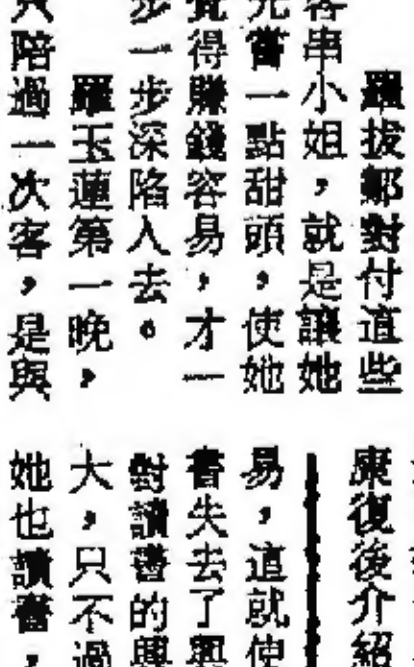 羅拔鄒對付這些
客串小姐，就是讓她
先嘗一點甜頭，使她
覺得賺錢容易，才一
步一步深陷入去。
羅玉蓮第一晚，
只陪過一次客，是與
康復後介紹
易，這就使
書失去了興
對讀書的興
大，只不過
她也讀書，